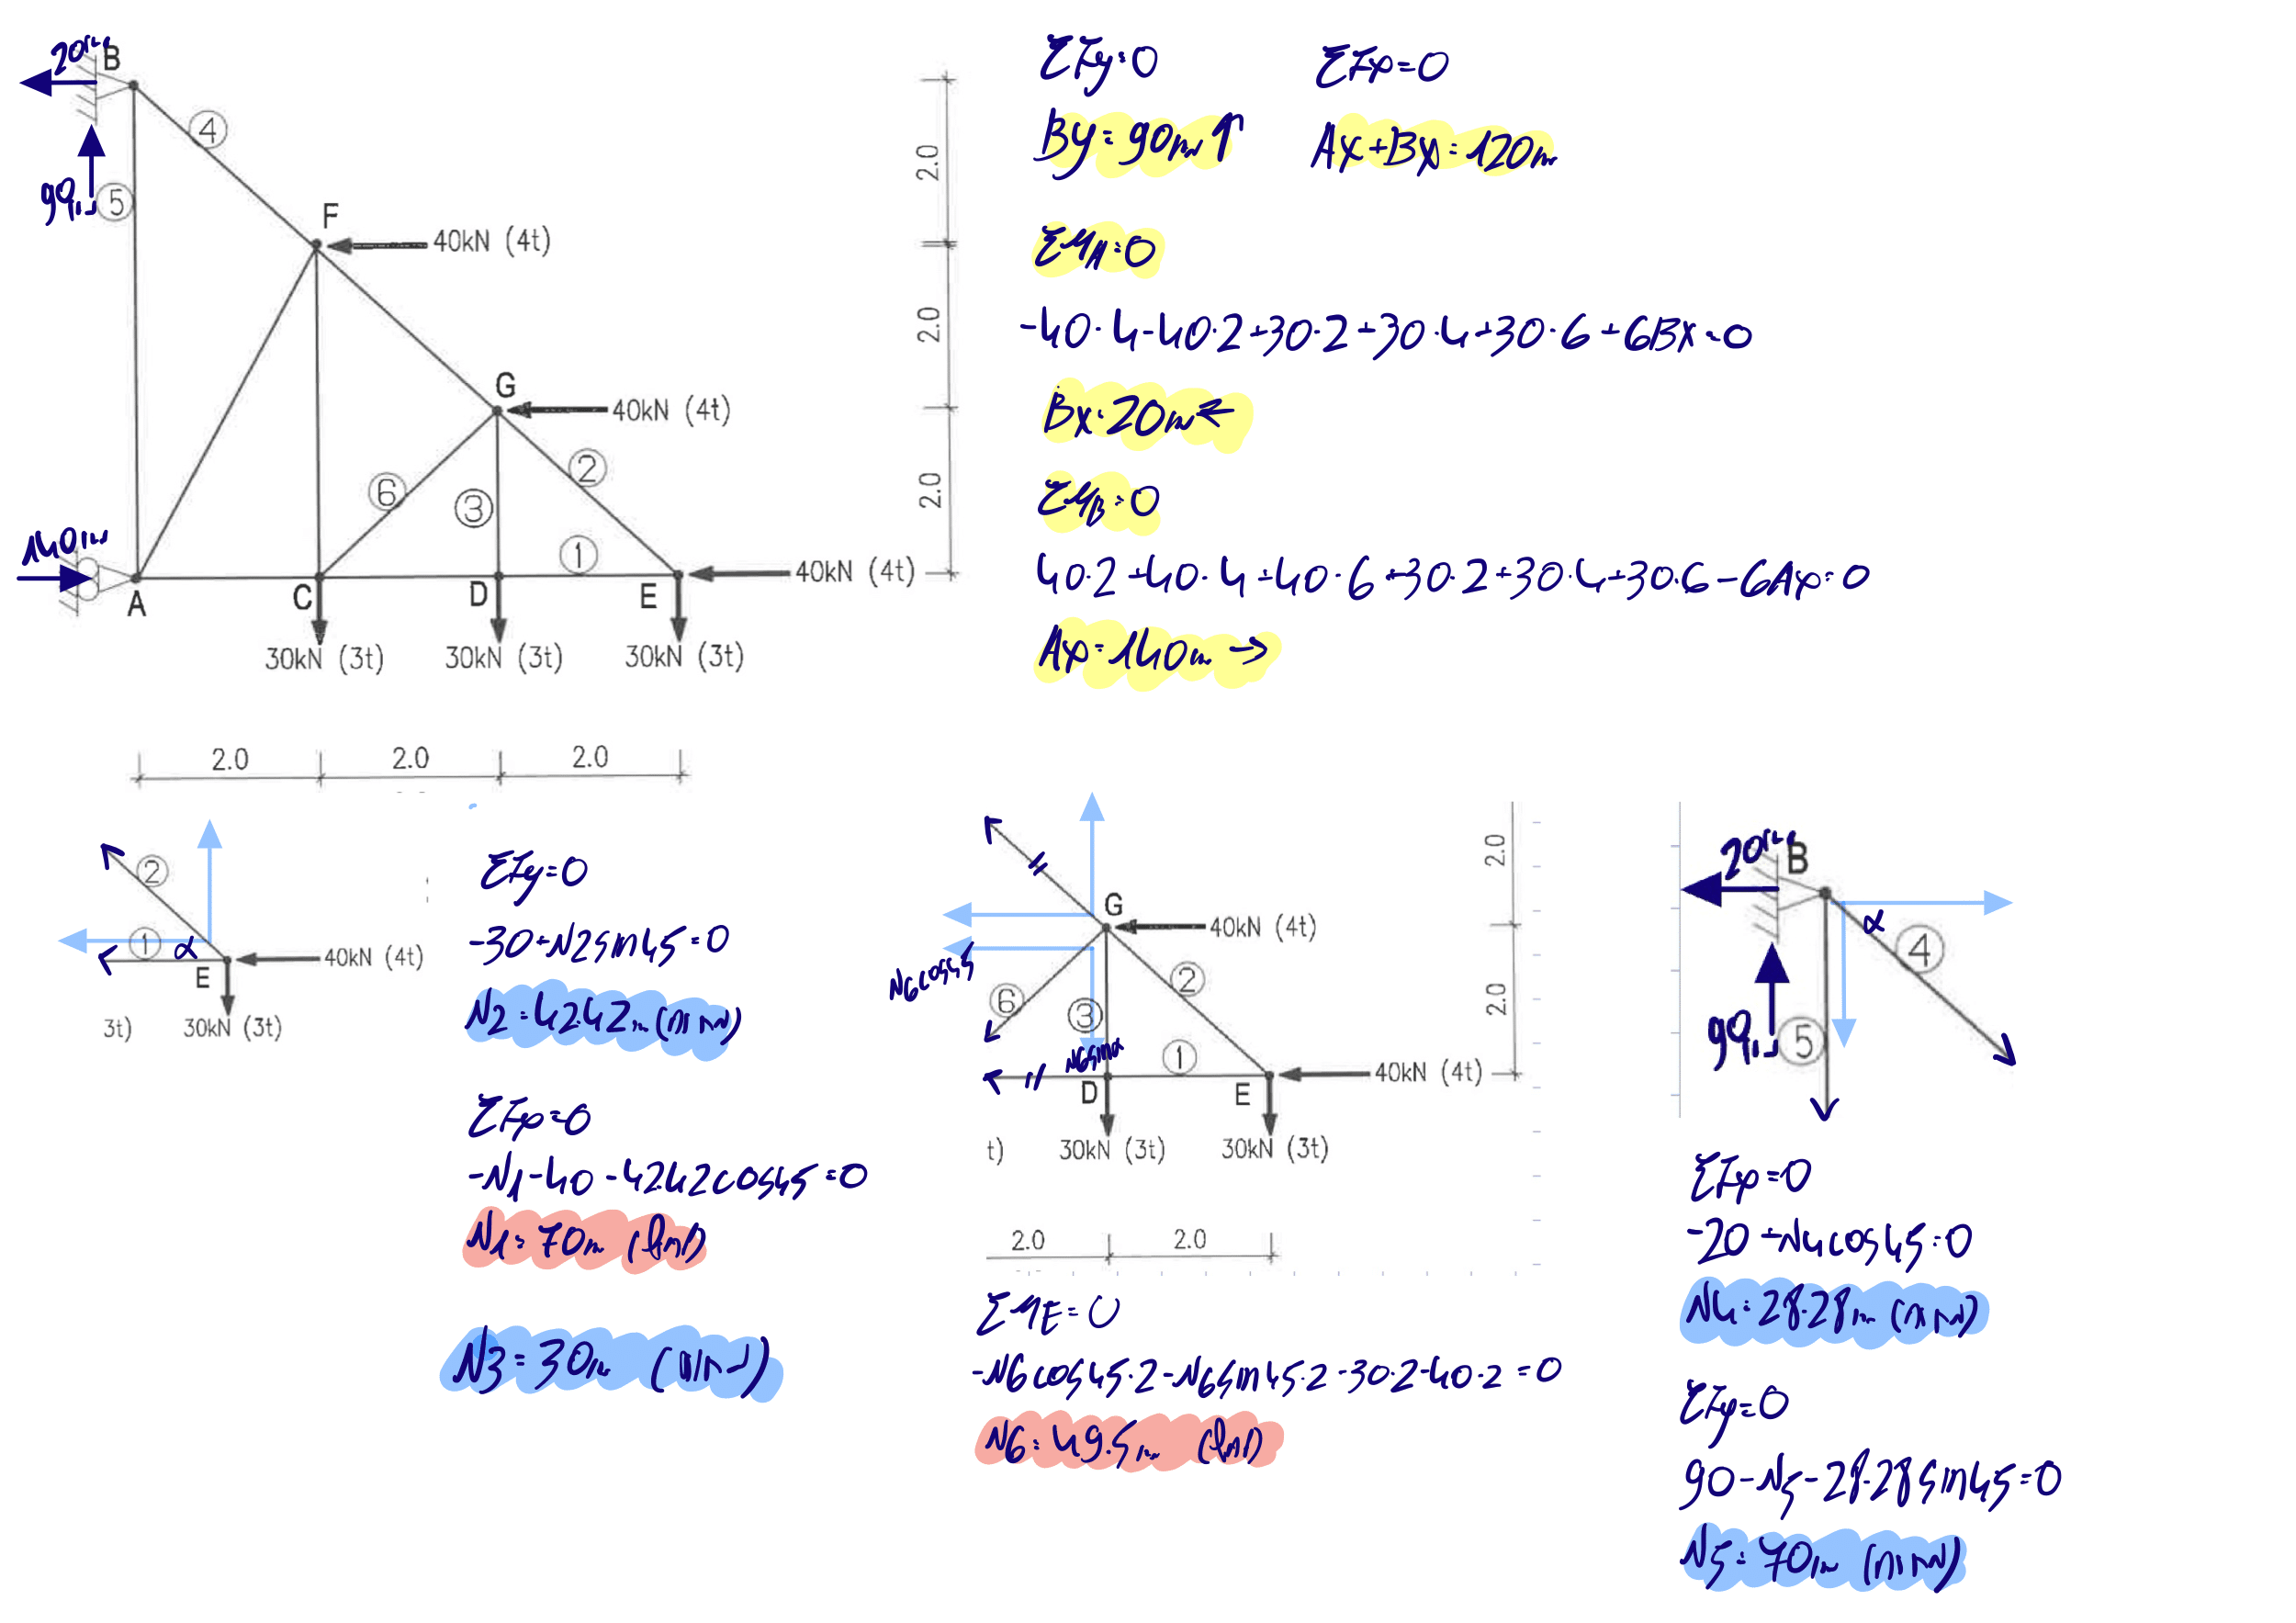 20
B
4
90
5
F
40kN (4t)
G
40kN (4t)
6
3
2
1
140
A
C
D
E
40kN (4t)
30kN (3t)
30kN (3t)
30kN (3t)
2.0
2.0
2.0
2.0
2.0
2.0
ΣFy=0
ΣFx=0
By=90kN↑
Ax+Bx=120kN
ΣMA=0
-40·4-40·2+30·2+30·4+30·6+6Bx=0
Bx=20kN←
ΣMB=0
40·2+40·4+40·6+30·2+30·4+30·6-6Ax=0
Ax=140kN→
2
1
α
E
40kN (4t)
3t)
30kN (3t)
ΣFy=0
-30+N2sin45=0
N2=42.42kN
ΣFx=0
-N1-40-42.42cos45=0
N1=70kN
N3=30kN
G
40kN (4t)
N6cos45
6
3
2
N6sinα
1
D
E
40kN (4t)
t)
30kN (3t)
30kN (3t)
2.0
2.0
2.0
2.0
ΣME=0
-N6cos45·2-N6sin45·2-30·2-40·2=0
N6=49.5kN
20
B
α
4
90
5
ΣFx=0
-20+N4cos45=0
N4=28.28kN
ΣFy=0
90-N5-28.28sin45=0
N5=70kN